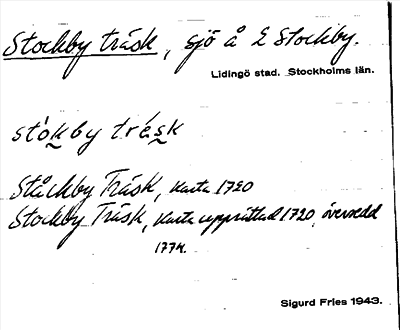 Stockby träsk, sjö å E Stockby.
Lidingö stad. Stockholms län.
stókby trésk
Ståckby Träsk, karta 1720
Stockby Träsk, karta upprättad 1720, översedd
1774.
Sigurd Fries 1943.